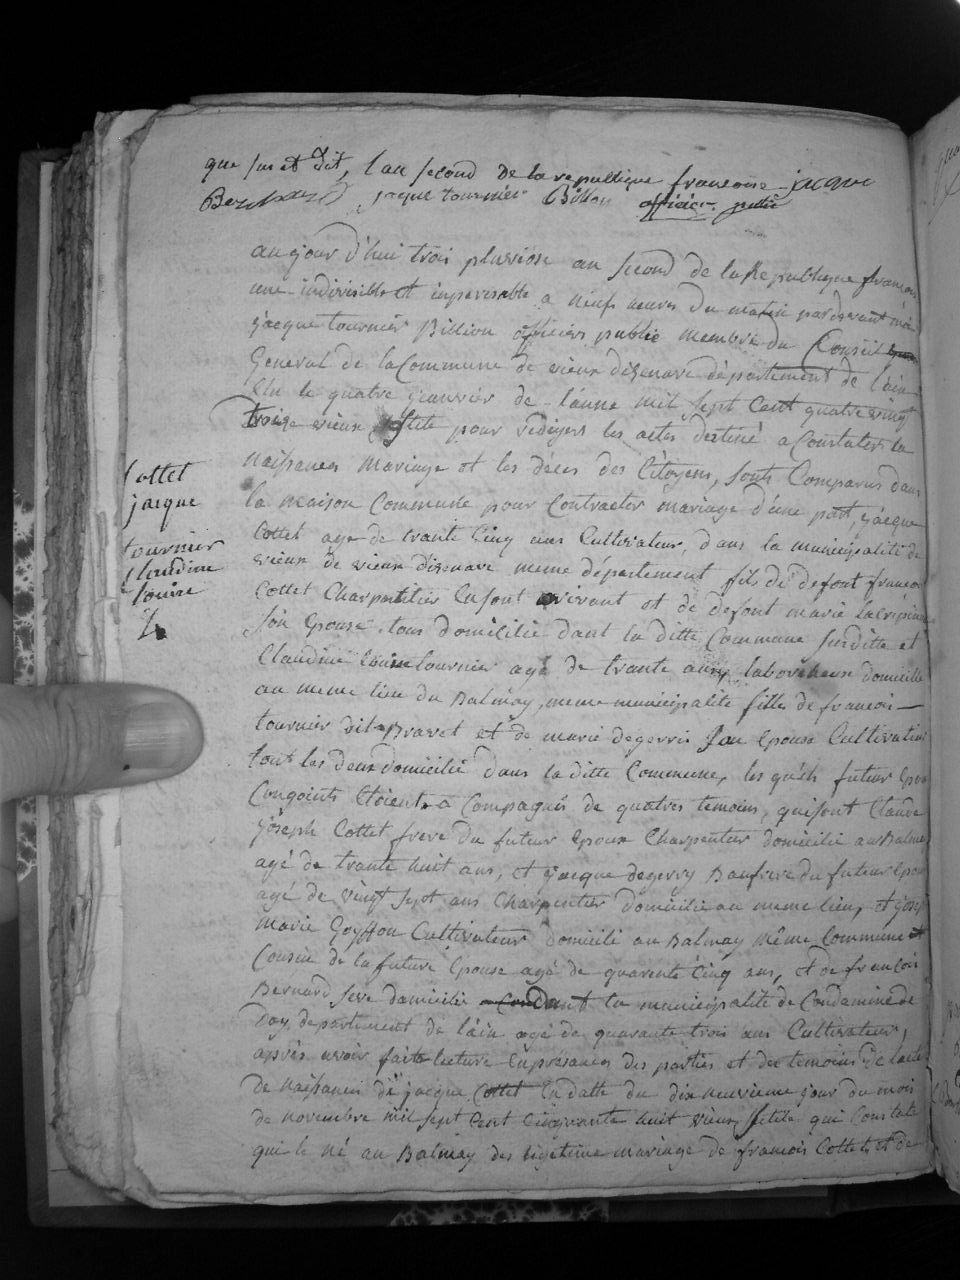 que sus et dit, l'an second de la republique francoise jacque
Bernard, jacque tournier Billion officier public
aujour d'hui trois pluviose an second de la Republique francois
une indivisible et imperisable a neuf heures du matin pardevant moi
jacque tournier Billion officiers public membre du Conseil
General de la Commune de vieux disenave département de l'ain
Elu le quatre janvier de l'anne mil sept Cent quatre vingt
treize vieux stile pour rediger les actes destiné a Constater la
naissances mariage et les déces des Citoyens, sont Comparus dans
la maison Commune pour Contracter mariage d'une part, jacque
Cottet age de trante Cinq ans Cultivateur, dans la municipalité de
vieux de vieux disenave meme département fils de defont francois
Cottet Charpentier en sont vivant et de defont marie
son Epouse, tous domicilié dant la ditte Commune susditte et
Claudine louise tournier agé de trante ans laboureuse domicille
au meme lieu du Balmay, meme municipalité filles de francois
tournier dit Bravet et de marie degerris son Epouse Cultivateur
tout les deux domicilié dans la ditte Commune, les quels futur Epoux
Congoints Etoient a Compagnés de quatres temoins, qui sont Claude
joseph Cottet frere du futeur Epoux Charpentier domicilié au Balmay
agé de trante huit ans, et jacque degerry Baufrere du futeur Epoux
agé de vingt sept ans Charpentier domicilié au meme lieu, et josep
marie Goyffon Cultivateur domicilé au Balmay même Commune et
Cousin de la future Epouse agé de quarente Cinq ans, et de francois
Bernard fere domicilié dant la municipalité de Condamine de
Doy, departement de l'ain agé de quarante trois ans Cultivateur,
après avoir faite lecture en présances des parties et des temoins de l'acte
de naissances de jacque Cottet en datte du dix neuvieme jour du mois
de novembre mil sept Cent Cinquante huit vieux stile qui Constate
qui le né au Balmay des legitime mariage de francois Cottet, et de
Cottet
jacque
tournier
Claudine
louise